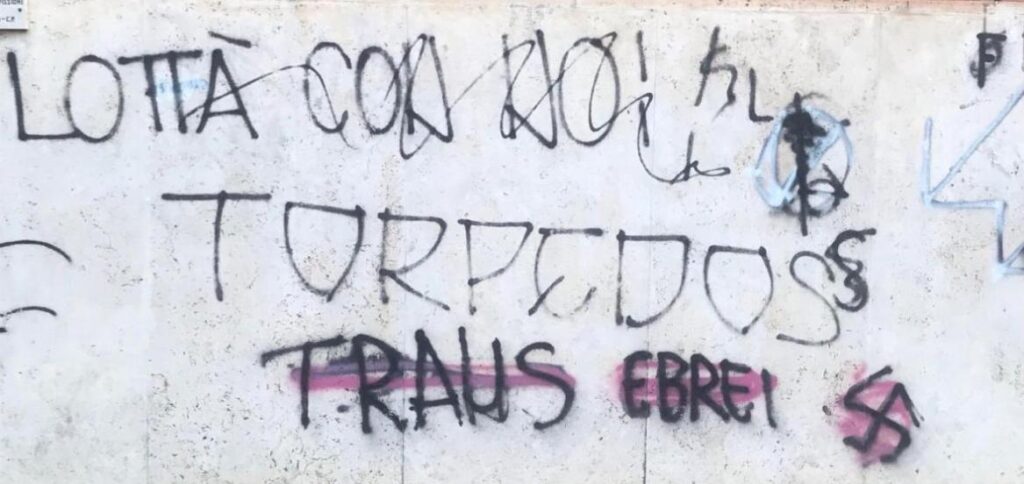 LOTTÀ CON NOI
TORPEDOS
TRAUS EBREI